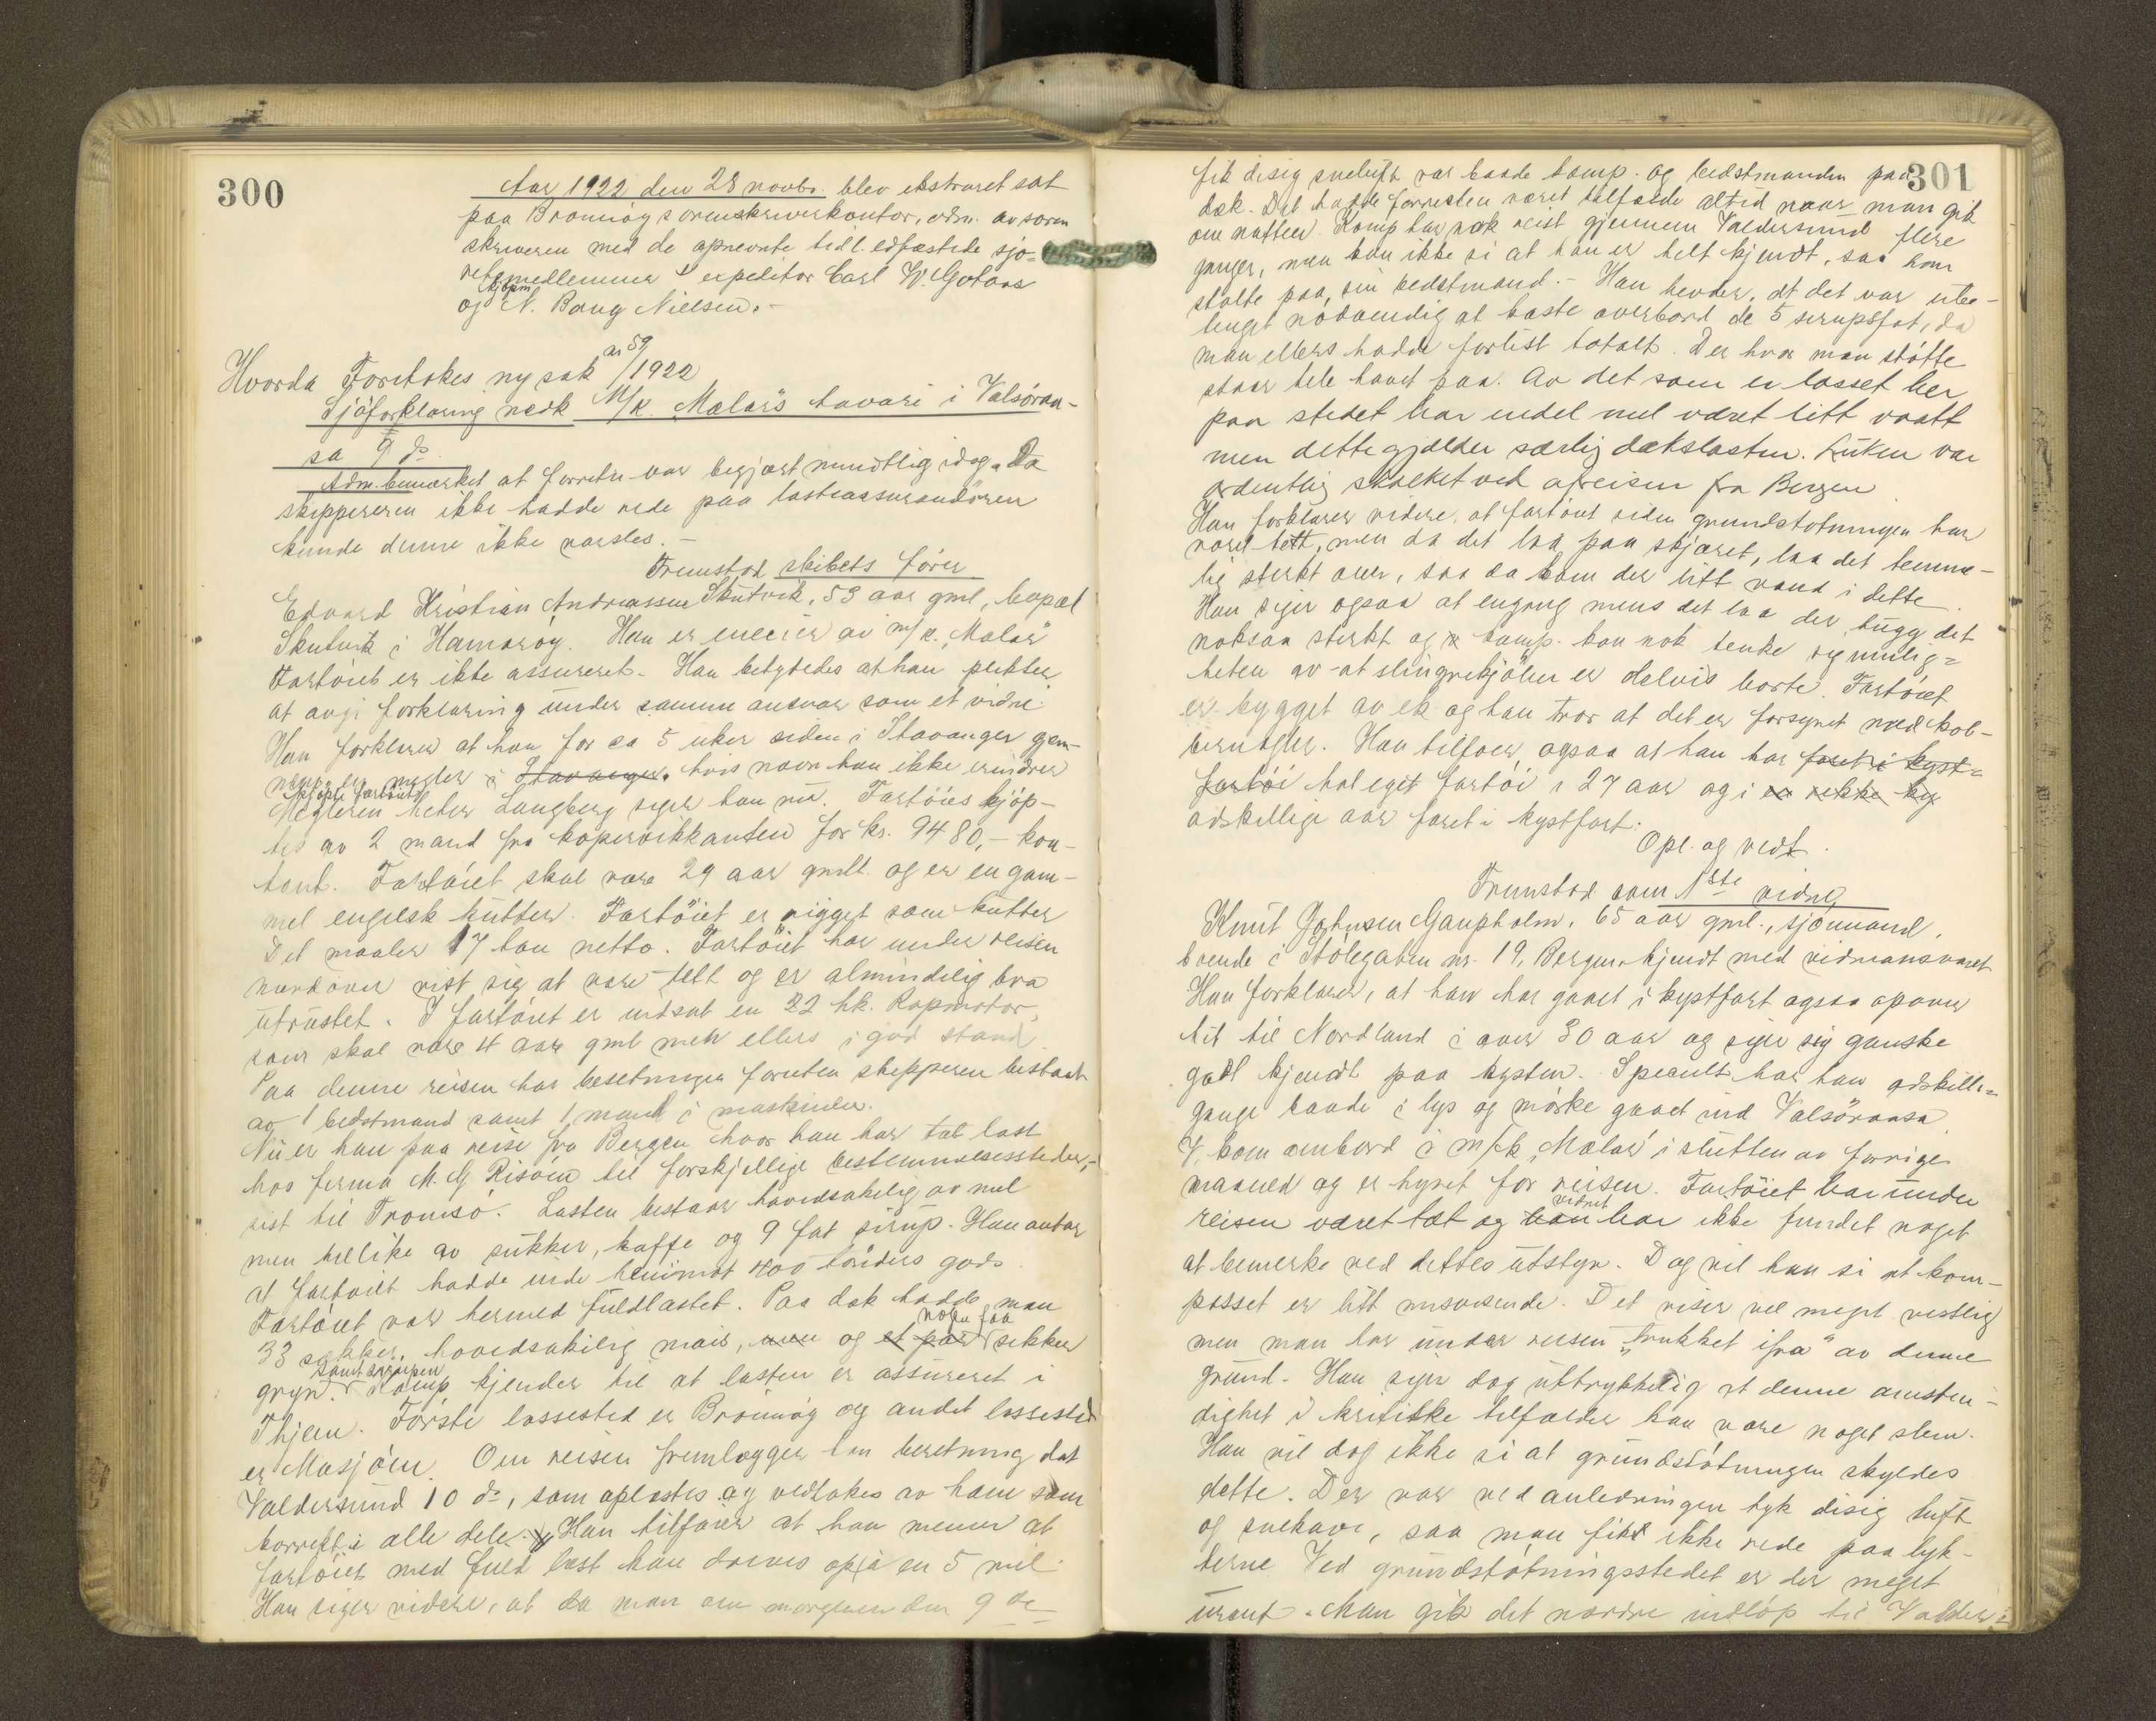 300
Aar 1922 den 28 novbr. blev ekstraret sat
paa Brønnøy sorenskriverkontor, adm. av soren
skriveren med de opnevnte tidl. edfæstede sjø-
retsmedlemmer expeditør Carl W. Gotaas
kjøpm
og N. Bang Nielsen. -
Hvorda Foretokes ny sak nr 59/1922
Sjöforklaring vedk M/k. "Mælar"s havari i Valsöran-
sa 9 ds.
Adm. bemærket at forretn. var begjært mundtlig idag. Da
skippereren ikke hadde rede paa lasteassurandören
kunde denne ikke varsles. -
Fremstod skibets förer
Edvard Kristian Andreassen Skutvik, 53 aar gml, bopæl
Skutvik i Hamarøy. Han er eneeier av m/k. "Malar"
Fartöiet er ikke assureret. Han betydedes at han plikter
at avgi forklaring under samme ansvar som et vidne.
Han forklarer at han for ca 5 uker siden i Stavanger gjen-
nem en megler i Stavanger, hvis navn han ikke erindrer
kjøpte fartøiet
Megleren heter Langberg siger han nu. Fartöiet kjøp-
tes av 2 mand fra kopervikkanten for kr. 9480,- kon-
tant. Fartöiet skal være 29 aar gmlt. og er en gam-
mel engelsk kutter. Fartöiet er rigget som kutter
Det maaler 17 ton netto. Fartöiet har under reisen
nordover vist sig at være tett og er almindelig bra
utrustet. I fartöiet er indsat en 22 hk. Rapmotor,
som skal være 4 aar gml men ellers i god stand.
Paa denne reisen har besetningen foruten skipperen bestaat
av 1 bedstmand samt 1 mand i maskinen.
Nu er han paa reise fra Bergen hvor han har tat last
hos firma M. G. Risøen til forskjellige bestemmelsessteder,-
sist til Tromsö. Lasten bestaar hovedsakelig av mel
men tillike av sukker, kaffe og 9 fat sirup. Han antar
at fartöiet hadde inde henimot 400 tönders gods.
Fartöiet var hermed fuldlastet. Paa dæk hadde man
33 sækker, hovedsakelig mais, men og et par noen faa sekker
gryn. samt sirupen Komp kjender til at lasten er assureret i
Thjem. Förste lossested er Brönnöy og andet lossested
er Mosjöen. Om reisen fremlægger han beretning dat
Valdersund 10 ds, som oplæstes og vedtokes av ham som
korrekt i alle dele. Han tilföier at han mener at
fartöiet med fuld last kan drives opi en 5 mil.
Han siger videre, at da man om morgenen den 9 de
301
fik disig sneluft var baade komp. og bedstmanden paa
dæk. Det hadde forresten været tilfælde altid naar man gik
om natten. Komp har nok reist gjennem Valdersund flere
ganger, men kan ikke si at han er helt kjendt, saa han
stolte paa sin bedstmand. - Han hevder, at det var ube-
tinget nödvendig at kaste overbord de 5 sirupsfat, da
man ellers hadde forlist totalt. Der hvor man stötte
staar hele havet paa. Av det som er losset her
paa stedet har endel mel været litt vaatt
men dette gjælder særlig dækslasten. Luken var
ordentlig skalket ved avreisen fra Bergen
Han forklarer videre, at fartöiet siden grundstötningen har
været tett, men da det laa paa skjæret, laa det temme-
lig sterkt over, saa da kom der litt vand i dette.
Han siger ogsaa at engang mens det laa der, hugg det
noksaa sterkt og komp. kan nok tenke sig mulig=
heten av at slingrekjölen er delvis borte. Fartöiet
er bygget av ek og han tror at det er forsynet med kob-
bernagler. Han tilføier ogsaa at han har faret i kyst=
fartöi hat eget fartöi i 27 aar og i en rekke ky
adskillige aar faret i kystfart.
Opl. og vedt.
Fremstod som 1ste vidne
Knut Johnsen Gaupholm, 65 aar gml., sjömand,
boende i Stölegaten nr. 19, Bergen, kjendt med vidneansvaret
Han forklarer, at han har gaaet i kystfart ogsaa opover
hit til Nordland i over 30 aar og sier sig ganske
godt kjendt paa kysten. Specielt har han adskillige
gange baade i lys og mörke gaaet ind Valsöransa.
V. kom ombord i m/k "Mælar" i slutten av forrige
maaned og er hyret for reisen. Fartöiet har under
reisen været tæt og han vidnet har ikke fundet noget
at bemerke ved dettes utstyr. Dog vil han si at kom-
passet er litt misvisende. Det viser vel meget vestlig
men man har under reisen "trukket ifra" av denne
grund. Han sier dog uttrykkelig at denne omsten-
dighet i kritiske tilfælder kan være noget slem.
Han vil dog ikke si at grundstötningen skyldes
dette. Der var ved anledningen tyk disig luft
og snekave, saa man fikk ikke rede paa lyk-
terne Ved grundstötningsstedet er der meget
urent. Man gik det nordre indlöp til Valder=